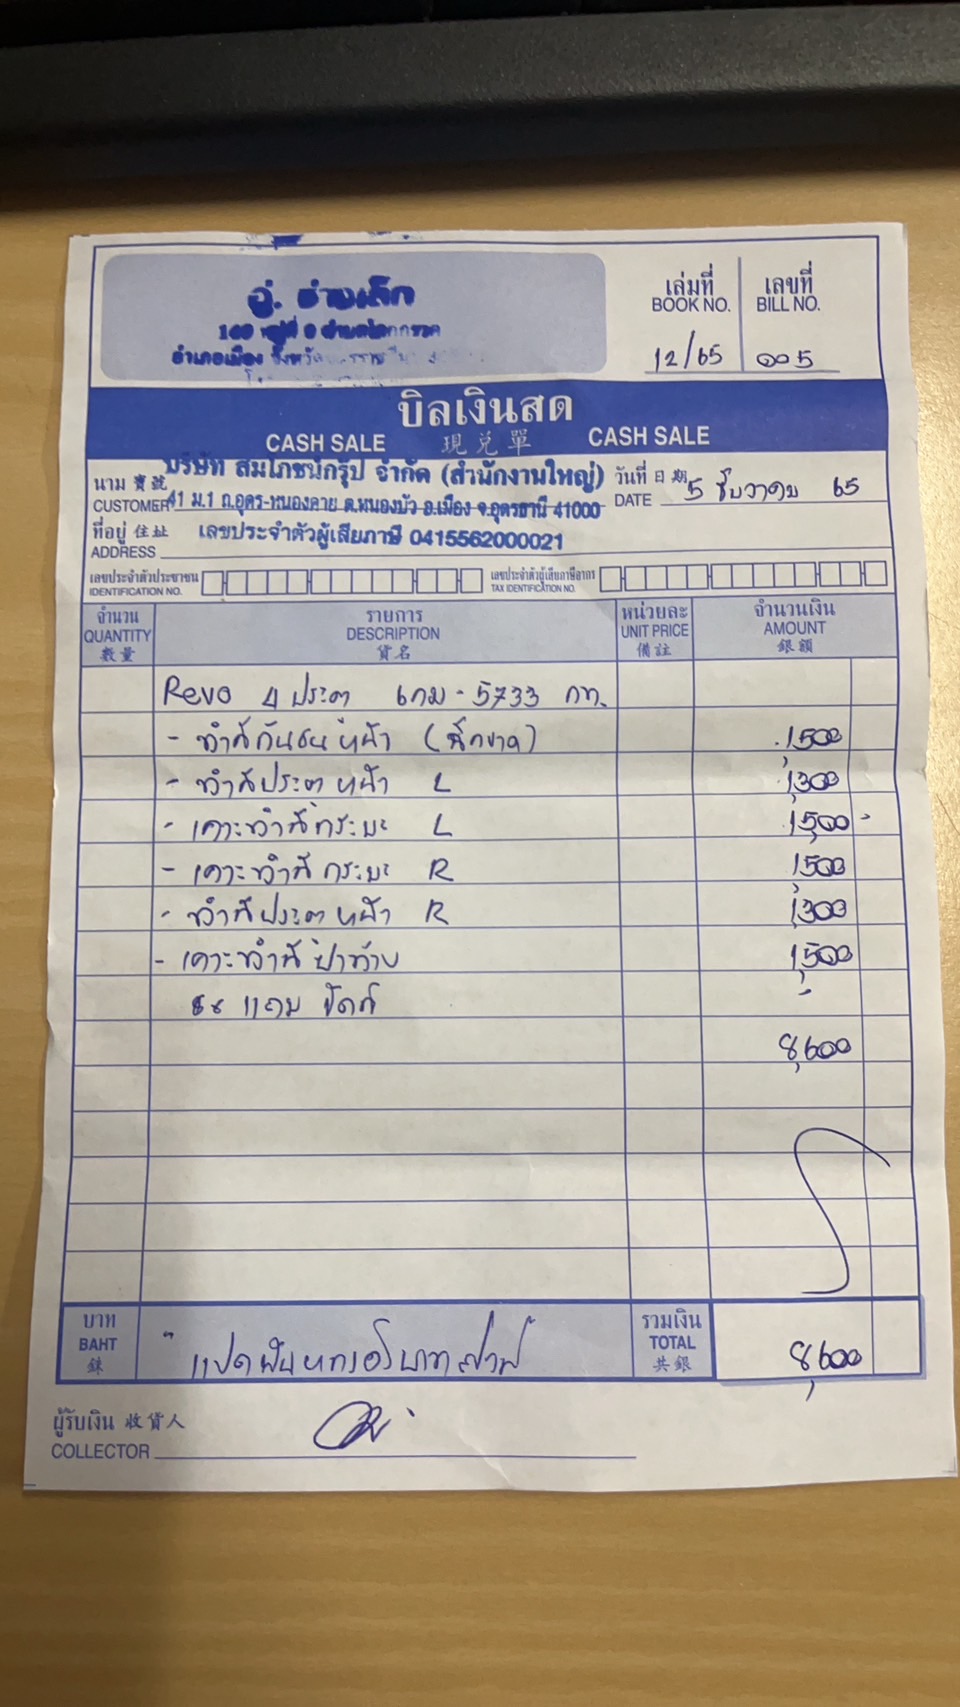 อู่. ช่างเล็ก
เล่มที่
BOOK NO.
12/65
เลขที่
BILL NO.
005
อำเภอเมือง จังหวัด
บิลเงินสด
CASH SALE 現兌單 CASH SALE
บริษัท สมโภชน์กรุ๊ป จำกัด (สำนักงานใหญ่)
นาม 寶號
CUSTOMER 41 ม.1 ถ.อุดร-หนองคาย ต.หนองบัว อ.เมือง จ.อุดรธานี 41000
วันที่ 日期 5 ธันวาคม 65
DATE
ที่อยู่ 住址 เลขประจำตัวผู้เสียภาษี 0415562000021
ADDRESS
เลขประจำตัวประชาชน
IDENTIFICATION NO.
เลขประจำตัวผู้เสียภาษีอากร
TAX IDENTIFICATION NO.
จำนวน
QUANTITY
數量
รายการ
DESCRIPTION
貨名
หน่วยละ
UNIT PRICE
備註
จำนวนเงิน
AMOUNT
銀額
Revo 4 ประตู 6กม-5733 กท.
- ทำสีกันชนหน้า (ฉีกขาด) 1,500
- ทำสีประตูหน้า L 1,300
- เคาะทำสีกระบะ L 1,500 -
- เคาะทำสีกระบะ R 1,500
- ทำสีประตูหน้า R 1,300
- เคาะทำสีฝาท้าย 1,500
แถม ขัดสี -
8,600
บาท
BAHT
銖
แปดพันหกร้อยบาทถ้วน
รวมเงิน
TOTAL
共銀
8,600
ผู้รับเงิน 收貨人
COLLECTOR